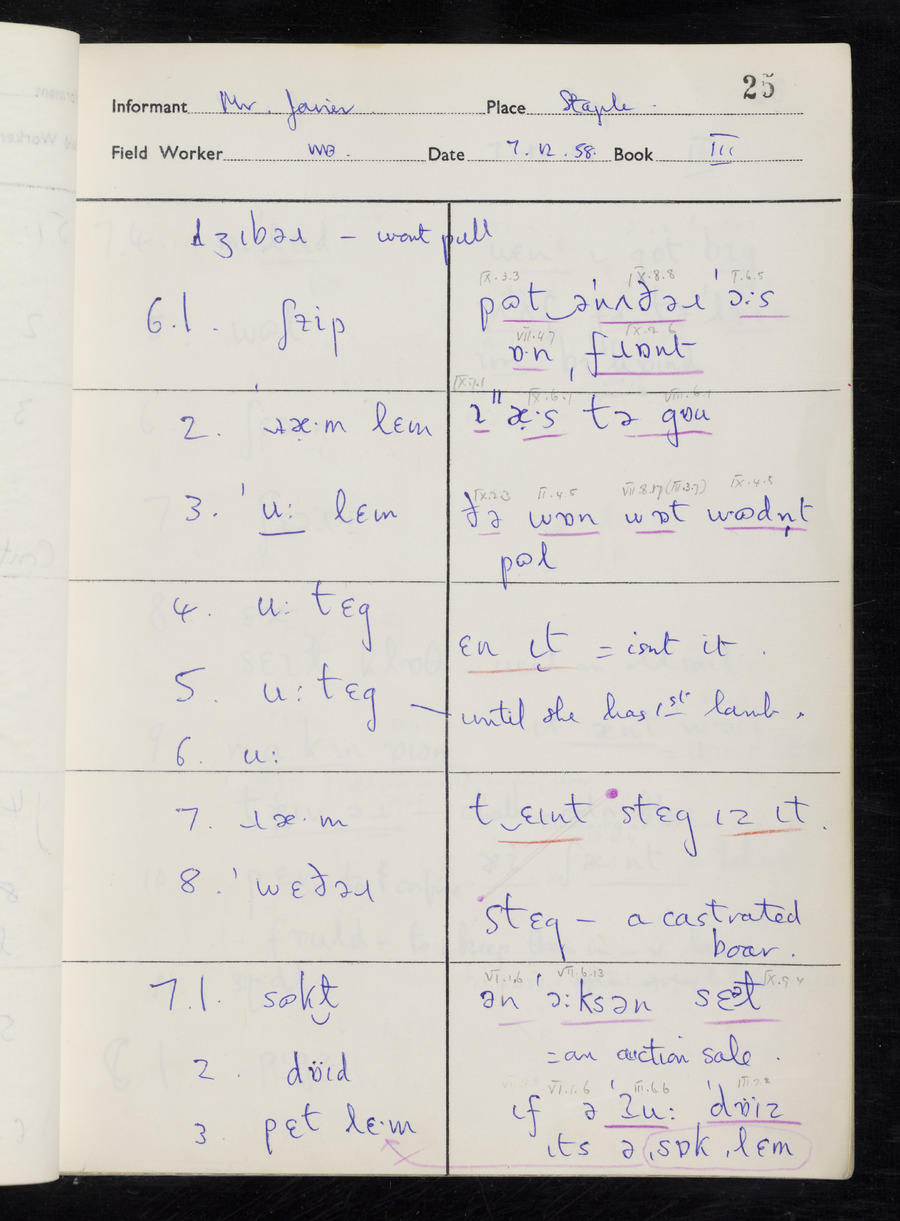 25
Informant Mr. Javier Place Staple.
Field Worker WB. Date 7.12.58. Book III
dʒɪbəɹ – wont pull
IX.3.3 IX.8.8 I.6.5
6.1. ʃɪip pɷt‿ə'nʌðəɹ 'ɔ:s
VII.4.7 IX.2.6
ɒ·n ˌfɹɒnt
IX.7.1 IX.6.1 VIII.6.1
2. 'ɹæ·m lɛm ɪ "æ·s tə gɒu
IX.2.3 II.4.5 VII.8.17 (III.3.7) IX.4.5
3. 'u: lɛm ðə wɒn wɒt wɷdn̩t
pɷl
4. u: tɛg
ɛn ɪt = isnt it.
5. u: tɛg — until she has 1st lamb.
6. u:
7. ɹæ·m t‿ɛɪnt stɛg ɪz ɪt.
8. 'wɛðəɹ
stɛg – a castrated
boar.
VI.1.6 VII.6.13 IX.9.4
7.1. sɒkt ən 'ɔ:ksən sɛət
= an auction sale.
2. dɒ̈id
VI.1.6 III.6.6 III.2.2
ɪf ə 'ʒu: 'dɒ̈iz
3 pɛt lɛ·m ɪts ə ˌsɒk ˌlɛm